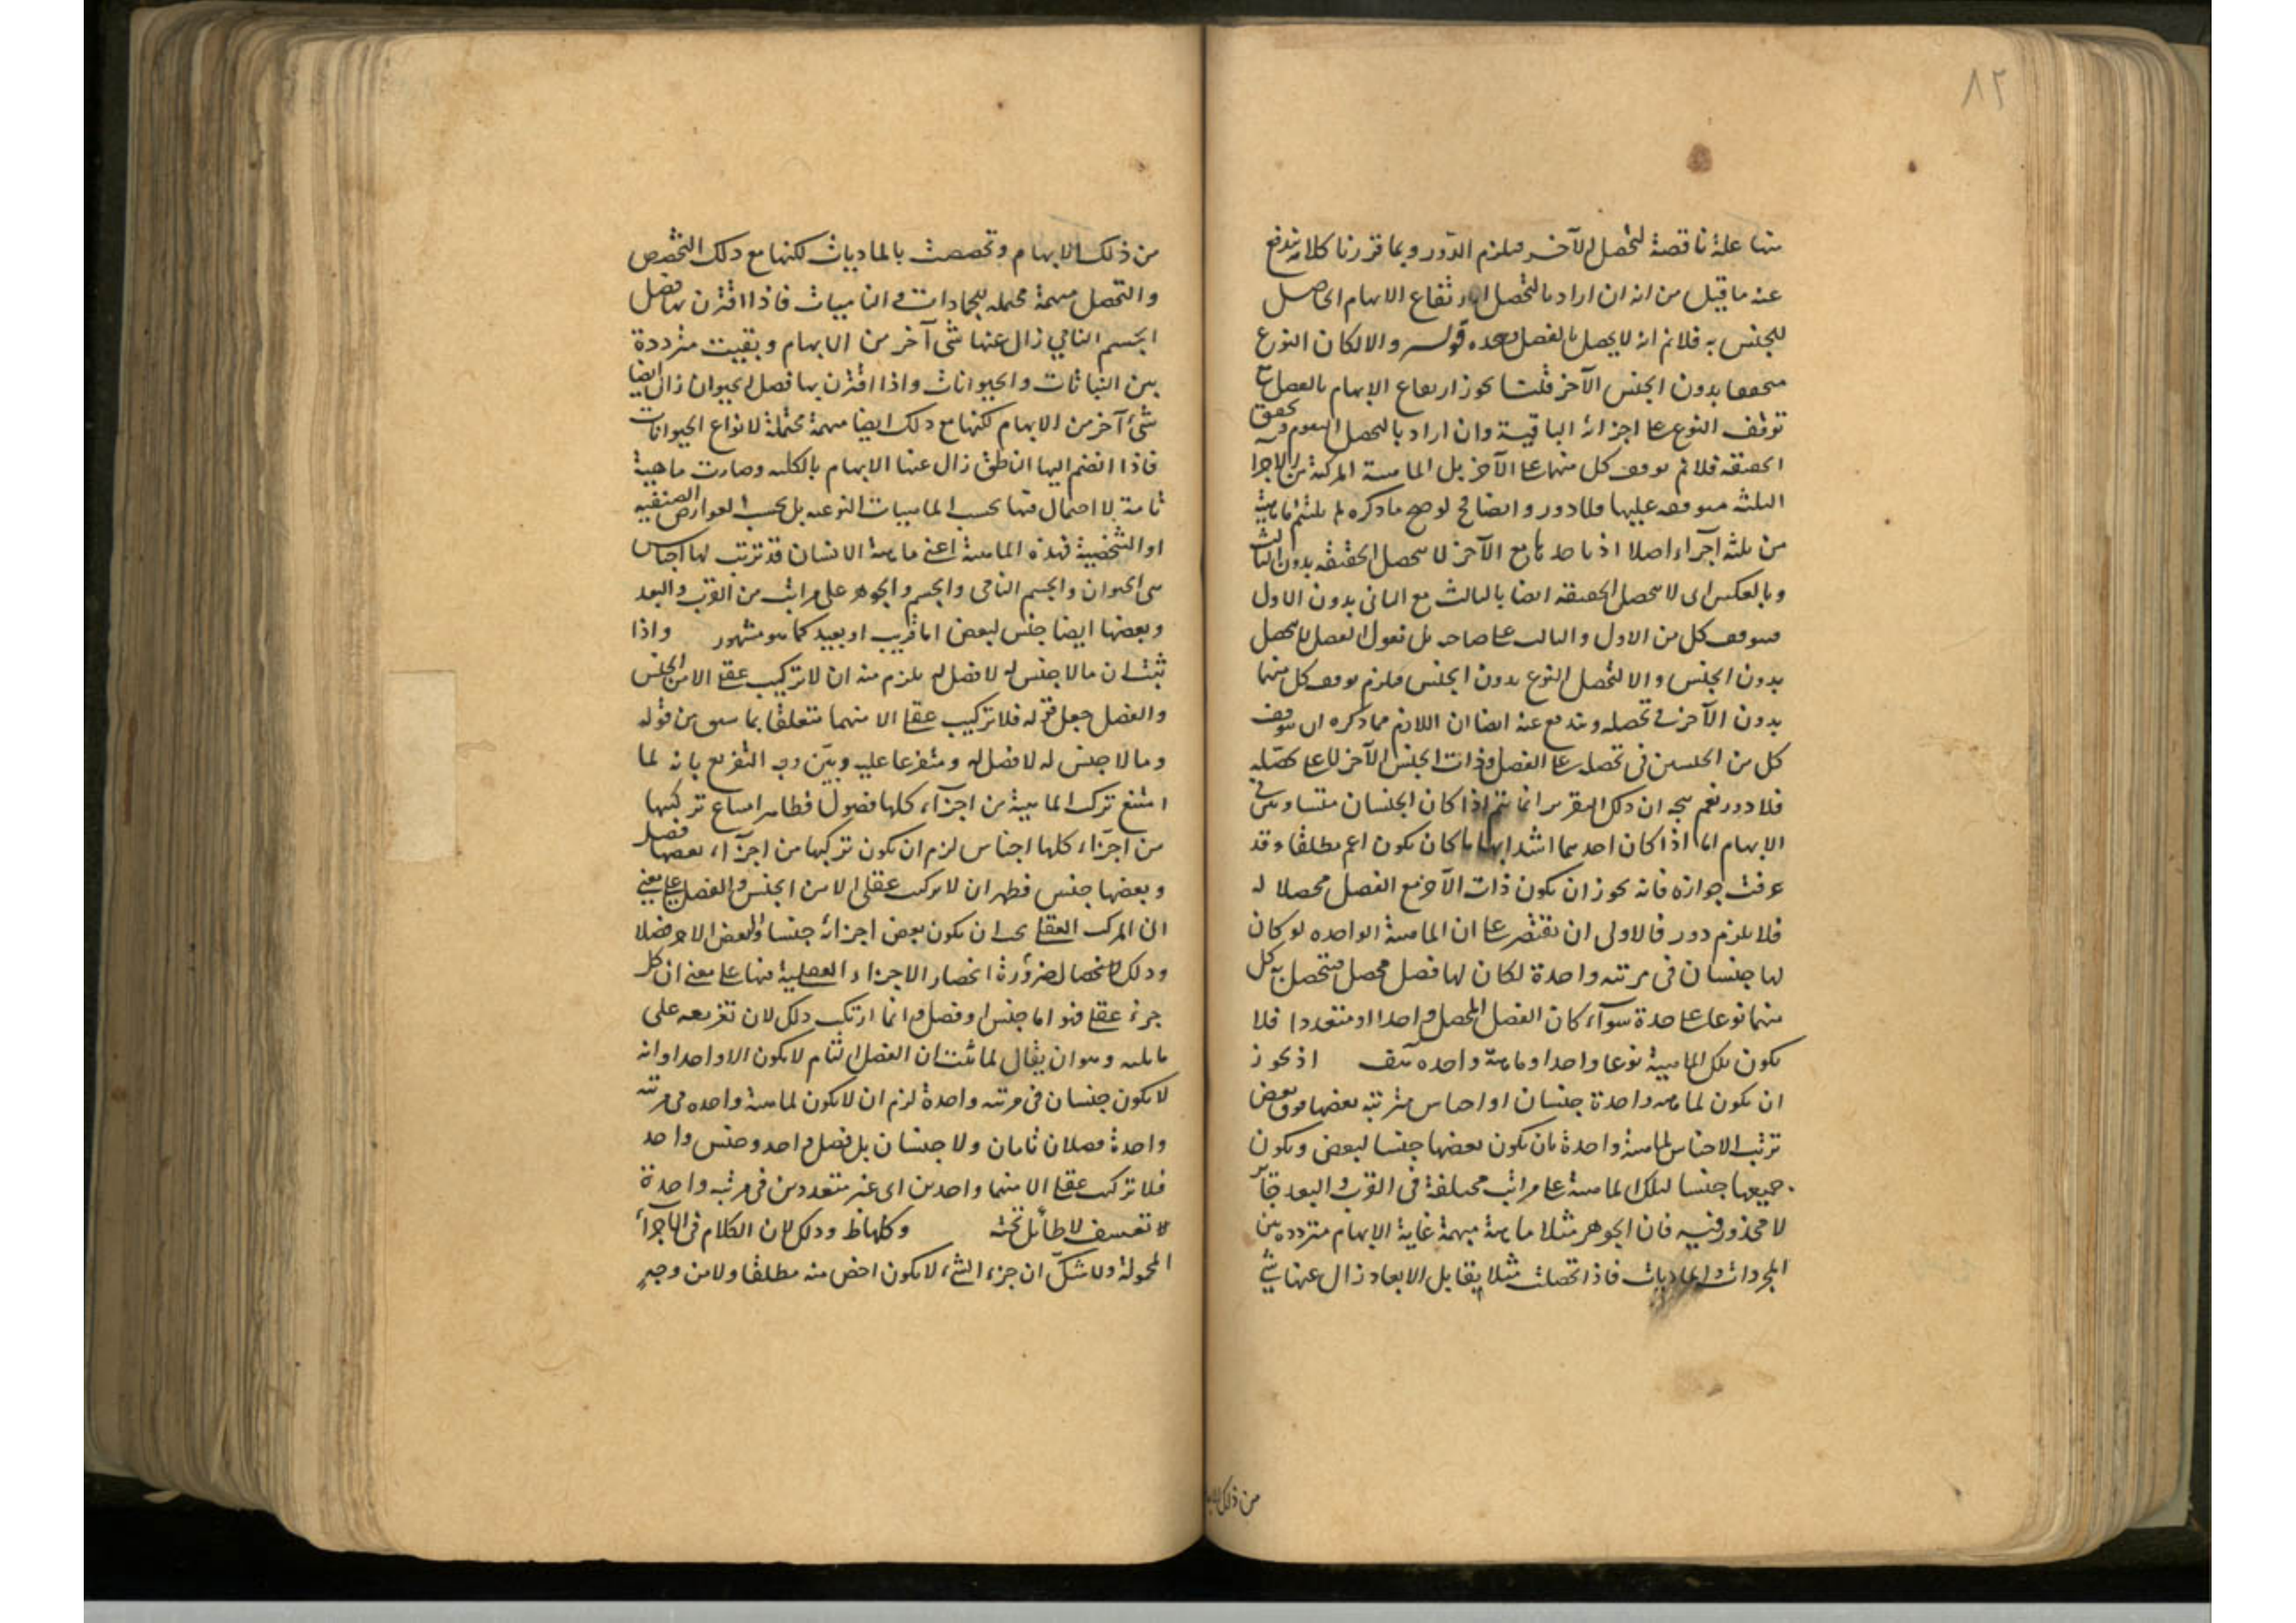 ٨٢
منها علة ناقصة لتحصل الآخر فيلزم الدور وبما قررنا كلامه يندفع
عنه ما قيل من انه ان اراد بالتحصل ارتفاع الابهام الحاصل
للجنس به فلانم انه لا يحصل بالفصل وحده قوله والا لكان النوع
متحققا بدون الجنس الآخر قلنا يجوز ارتفاع الابهام بالفصل مع
توقف النوع على اجزائه الباقية وان اراد بالتحصل التقوم وتحقق
الحقيقة فلانم توقف كل منهما على الآخر بل الماهية المركبة من الاجزاء
الثلثة متوقفة عليها فلا دور وايضا لو صح ما ذكره لم يلتئم ماهية
من ثلثة اجزاء اصلا اذ باحدها مع الآخر لا يحصل الحقيقة بدون الثالث
وبالعكس اى لا يحصل الحقيقة ايضا بالثالث مع الثانى بدون الاول
فيتوقف كل من الاول والثالث على صاحبه بل نقول الفصل لا يحصل
بدون الجنس والا لتحصل النوع بدون الجنس فيلزم توقف كل منهما
بدون الآخر فى تحصله ويندفع عنه ايضا ان اللازم مما ذكره ان يتوقف
كل من الجنسين فى تحصله على الفصل وذات الجنس الآخر لا على تحصله
فلا دور نعم يتجه ان ذلك التقرير انما يتم اذا كان الجنسان متساويين فى
الابهام اما اذا كان احدهما اشد ابهاما كان يكون اعم مطلقا وقد
عرفت جوازه فانه يجوز ان يكون ذات الآخر مع الفصل محصلا له
فلا يلزم دور فالاولى ان يقتصر على ان الماهية الواحدة لو كان
لها جنسان فى مرتبة واحدة لكان لها فصل محصل فيتحصل به كل
منهما نوعا على حدة سواء كان الفصل المحصل واحدا او متعددا فلا
يكون تلك الماهية نوعا واحدا وماهية واحدة اذ يجوز
ان يكون لماهية واحدة جنسان او اجناس مترتبة بعضها فوق بعض
ترتب الاجناس لماهية واحدة بان يكون بعضها جنسا لبعض ويكون
جميعها جنسا لتلك الماهية على مراتب مختلفة فى القرب والبعد جائز
لا محذور فيه فان الجوهر مثلا ماهية مبهمة غاية الابهام مترددة بين
المجردات والماديات فاذا تحصلت مثلا بقابل الابعاد زال عنها شئ
من ذلك الابها
من ذلك الابهام وتخصصت بالماديات لكنها مع ذلك التخصص
والتحصل مبهمة محتملة للجمادات و الناميات فاذا اقترن بها فصل
الجسم النامي زال عنها شئ آخر من الابهام وبقيت مترددة
بين النباتات والحيوانات واذا اقترن بها فصل الحيوان زال ايضا
شئ آخر من الابهام لكنها مع ذلك ايضا مبهمة محتملة لانواع الحيوانات
فاذا انضم اليها الناطق زال عنها الابهام بالكلية وصارت ماهية
تامة لا احتمال فيها بحسب الماهيات النوعية بل بحسب العوارض الصنفية
او الشخصية فهذه الماهية اعنى ماهية الانسان قد ترتب لها اجناس
هى الحيوان والجسم النامى والجسم والجوهر على مراتب من القرب والبعد
وبعضها ايضا جنس لبعض اما قريب او بعيد كما هو مشهور واذا
ثبت ان ما لا جنس له لا فصل له يلزم منه ان لا تركيب عقلى الا من الجنس
والفصل جعل قوله فلا تركيب عقلى الا منهما متعلقا بما سبق من قوله
وما لا جنس له لا فصل له ومتفرعا عليه وبيّن وجه التفريع بانه لما
امتنع تركب الماهية من اجزاء كلها فصول فظاهر امتناع تركبها
من اجزاء كلها اجناس لزم ان يكون تركبها من اجزاء بعضها فصل
وبعضها جنس فظهر ان لا تركيب عقلى الا من الجنس والفصل على معنى
ان المركب العقلى يجب ان يكون بعض اجزائه جنسا والبعض الآخر فصلا
وذلك لانحصار لضرورة انحصار الاجزاء العقلية فيها على معنى ان كل
جزء عقلى فهو اما جنس او فصل وانما ارتكب ذلك لان تفريعه على
ما يليه وهو ان يقال لما ثبت ان الفصل التام لا يكون الا واحدا وانه
لا يكون جنسان فى مرتبة واحدة لزم ان لا يكون لماهية واحدة فى مرتبة
واحدة فصلان تامان ولا جنسان بل فصل واحد وجنس واحد
فلا تركيب عقلى الا منهما واحدين اى غير متعددين فى مرتبة واحدة
تعسف لا طائل تحته وذلك لان الكلام فى الاجزاء
المحمولة ولا شك ان جزء الشئ لا يكون اخص منه مطلقا ولا من وجه